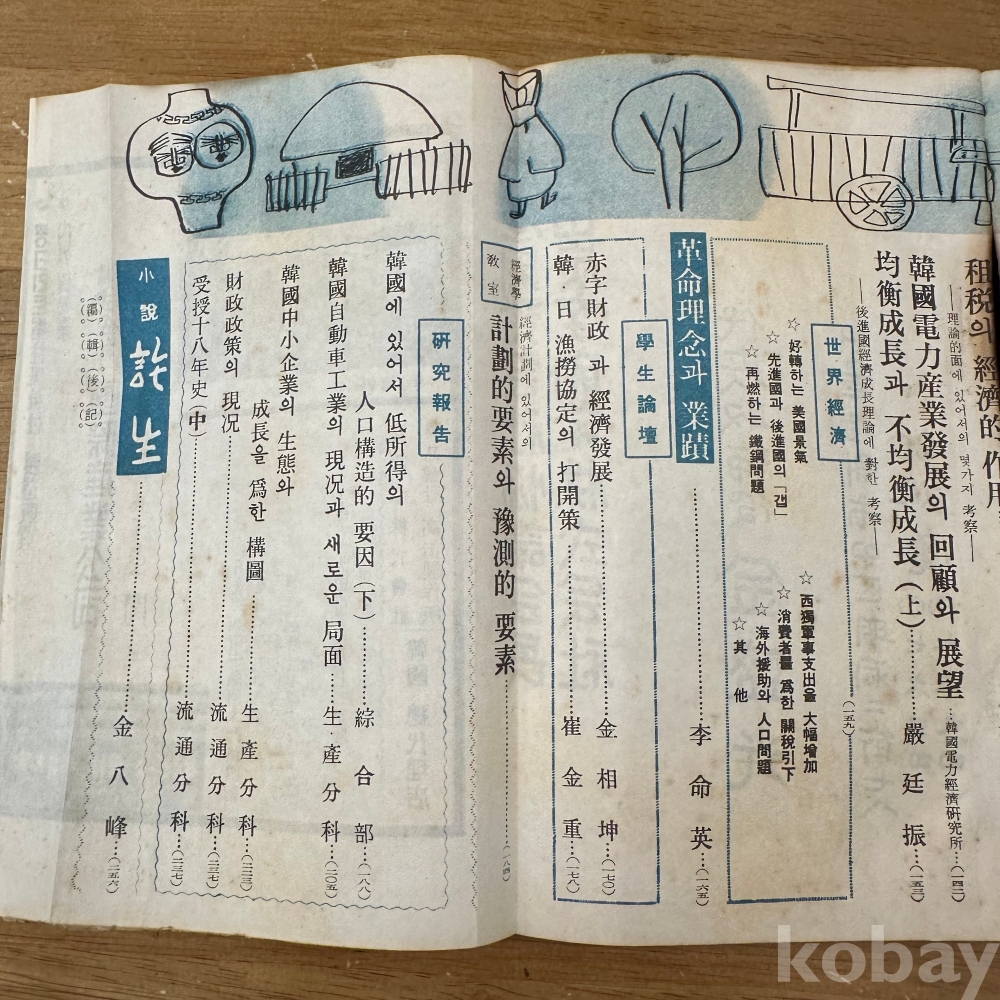 租税의 經濟的 作用
──理論的面에 있어서의 몇가지 考察──
韓國電力産業發展의 回顧와 展望…韓國電力經濟硏究所…(一四二)
均衡成長과 不均衡成長(上)…嚴廷振…(一五三)
──後進國經濟成長理論에 對한 考察──
世界經濟…(一五九)
☆ 好轉하는 美國景氣
☆ 先進國과 後進國의 「갭」
☆ 再燃하는 鐵鋼問題
☆ 西獨軍事支出을 大幅增加
☆ 消費者를 爲한 關稅引下
☆ 海外援助와 人口問題
☆ 其他
革命理念과 業蹟…李命英…(一六五)
學生論壇
赤字財政과 經濟發展…金相坤…(一七〇)
韓·日 漁撈協定의 打開策…崔金重…(一七八)
經濟學教室
經濟計劃에 있어서의
計劃的 要素와 豫測的 要素…(一八四)
硏究報告
韓國에 있어서 低所得의
人口構造的 要因(下)…綜合部…(一八八)
韓國自動車工業의 現況과 새로운 局面…生·產分科…(二〇五)
韓國中小企業의 生態와
成長을 爲한 構圖…生產分科…(二二三)
財政政策의 現況…流通分科…(二三七)
受授十八年史(中)…流通分科…(二三七)
小說 許生…金八峰…(二五六)
(編)(輯)(後)(記)
kobay